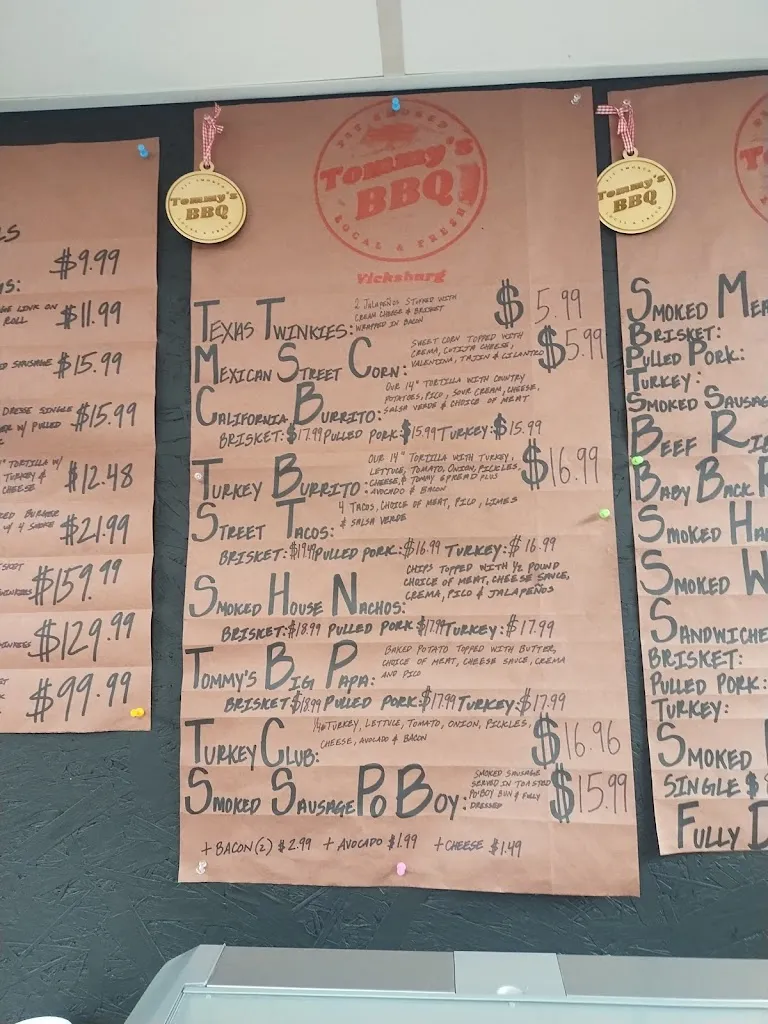 LS
$9.99
S:
GE LINK ON
ROLL
$11.99
D SAUSAGE $15.99
DRESSE SINGLE
ER W/ PULLED
$15.99
" TORTILLA W/
TURKEY &
CHEESE
$12.48
ED BURGER
W/ 4 SMOKE
$21.99
$159.99
TWINKIES
$129.99
$99.99
Tommy's
BBQ
PIT SMOKED
Tommy's
BBQ
LOCAL & FRESH
Vicksburg
TEXAS TWINKIES:
2 JALAPEÑOS STUFFED WITH
CREAM CHEESE & BRISKET
WRAPPED IN BACON
$5.99
MEXICAN STREET CORN:
SWEET CORN TOPPED WITH
CREMA, COTIJA CHEESE,
VALENTINA, TAJIN & CILANTRO
$5.99
CALIFORNIA BURRITO:
OUR 14" TORTILLA WITH COUNTRY
POTATOES, PICO, SOUR CREAM, CHEESE,
SALSA VERDE & CHOICE OF MEAT
BRISKET: $17.99 PULLED PORK: $15.99 TURKEY: $15.99
TURKEY BURRITO:
OUR 14" TORTILLA WITH TURKEY,
LETTUCE, TOMATO, ONION, PICKLES,
CHEESE, & TOMMY SPREAD PLUS
AVOCADO & BACON
$16.99
STREET TACOS:
4 TACOS, CHOICE OF MEAT, PICO, LIMES
& SALSA VERDE
BRISKET: $19.49 PULLED PORK: $16.99 TURKEY: $16.99
SMOKED HOUSE NACHOS:
CHIPS TOPPED WITH 1/2 POUND
CHOICE OF MEAT, CHEESE SAUCE,
CREMA, PICO & JALAPEÑOS
BRISKET: $18.99 PULLED PORK: $17.99 TURKEY: $17.99
TOMMY'S BIG PAPA:
BAKED POTATO TOPPED WITH BUTTER,
CHOICE OF MEAT, CHEESE SAUCE, CREMA
AND PICO
BRISKET $18.99 PULLED PORK: $17.99 TURKEY: $17.99
TURKEY CLUB:
TURKEY, LETTUCE, TOMATO, ONION, PICKLES,
CHEESE, AVOCADO & BACON
$16.96
SMOKED SAUSAGE PO BOY:
SMOKED SAUSAGE
SERVED IN TOASTED
PO'BOY BUN & FULLY
DRESSED
$15.99
+ BACON (2) $2.99 + AVOCADO $1.99 + CHEESE $1.49
Tommy's
BBQ
SMOKED MEA
BRISKET:
PULLED PORK:
TURKEY:
SMOKED SAUSAG
BEEF RIB
BABY BACK R
SMOKED HA
SMOKED W
SANDWICHE
BRISKET:
PULLED PORK:
TURKEY:
SMOKED
SINGLE $
FULLY D